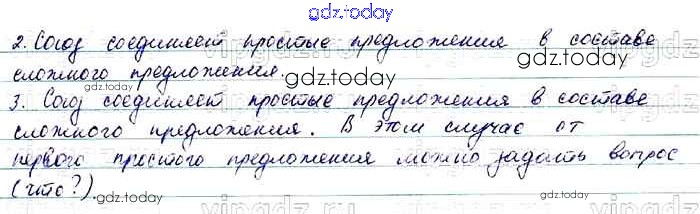 gdz.today
2. Союз соединяет простые предложения в составе
сложного предложения.
gdz.today
3. Союз соединяет простые предложения в составе
сложного предложения. В этом случае от
gdz.today
первого простого предложения можно задать вопрос
(что?).
gdz.today